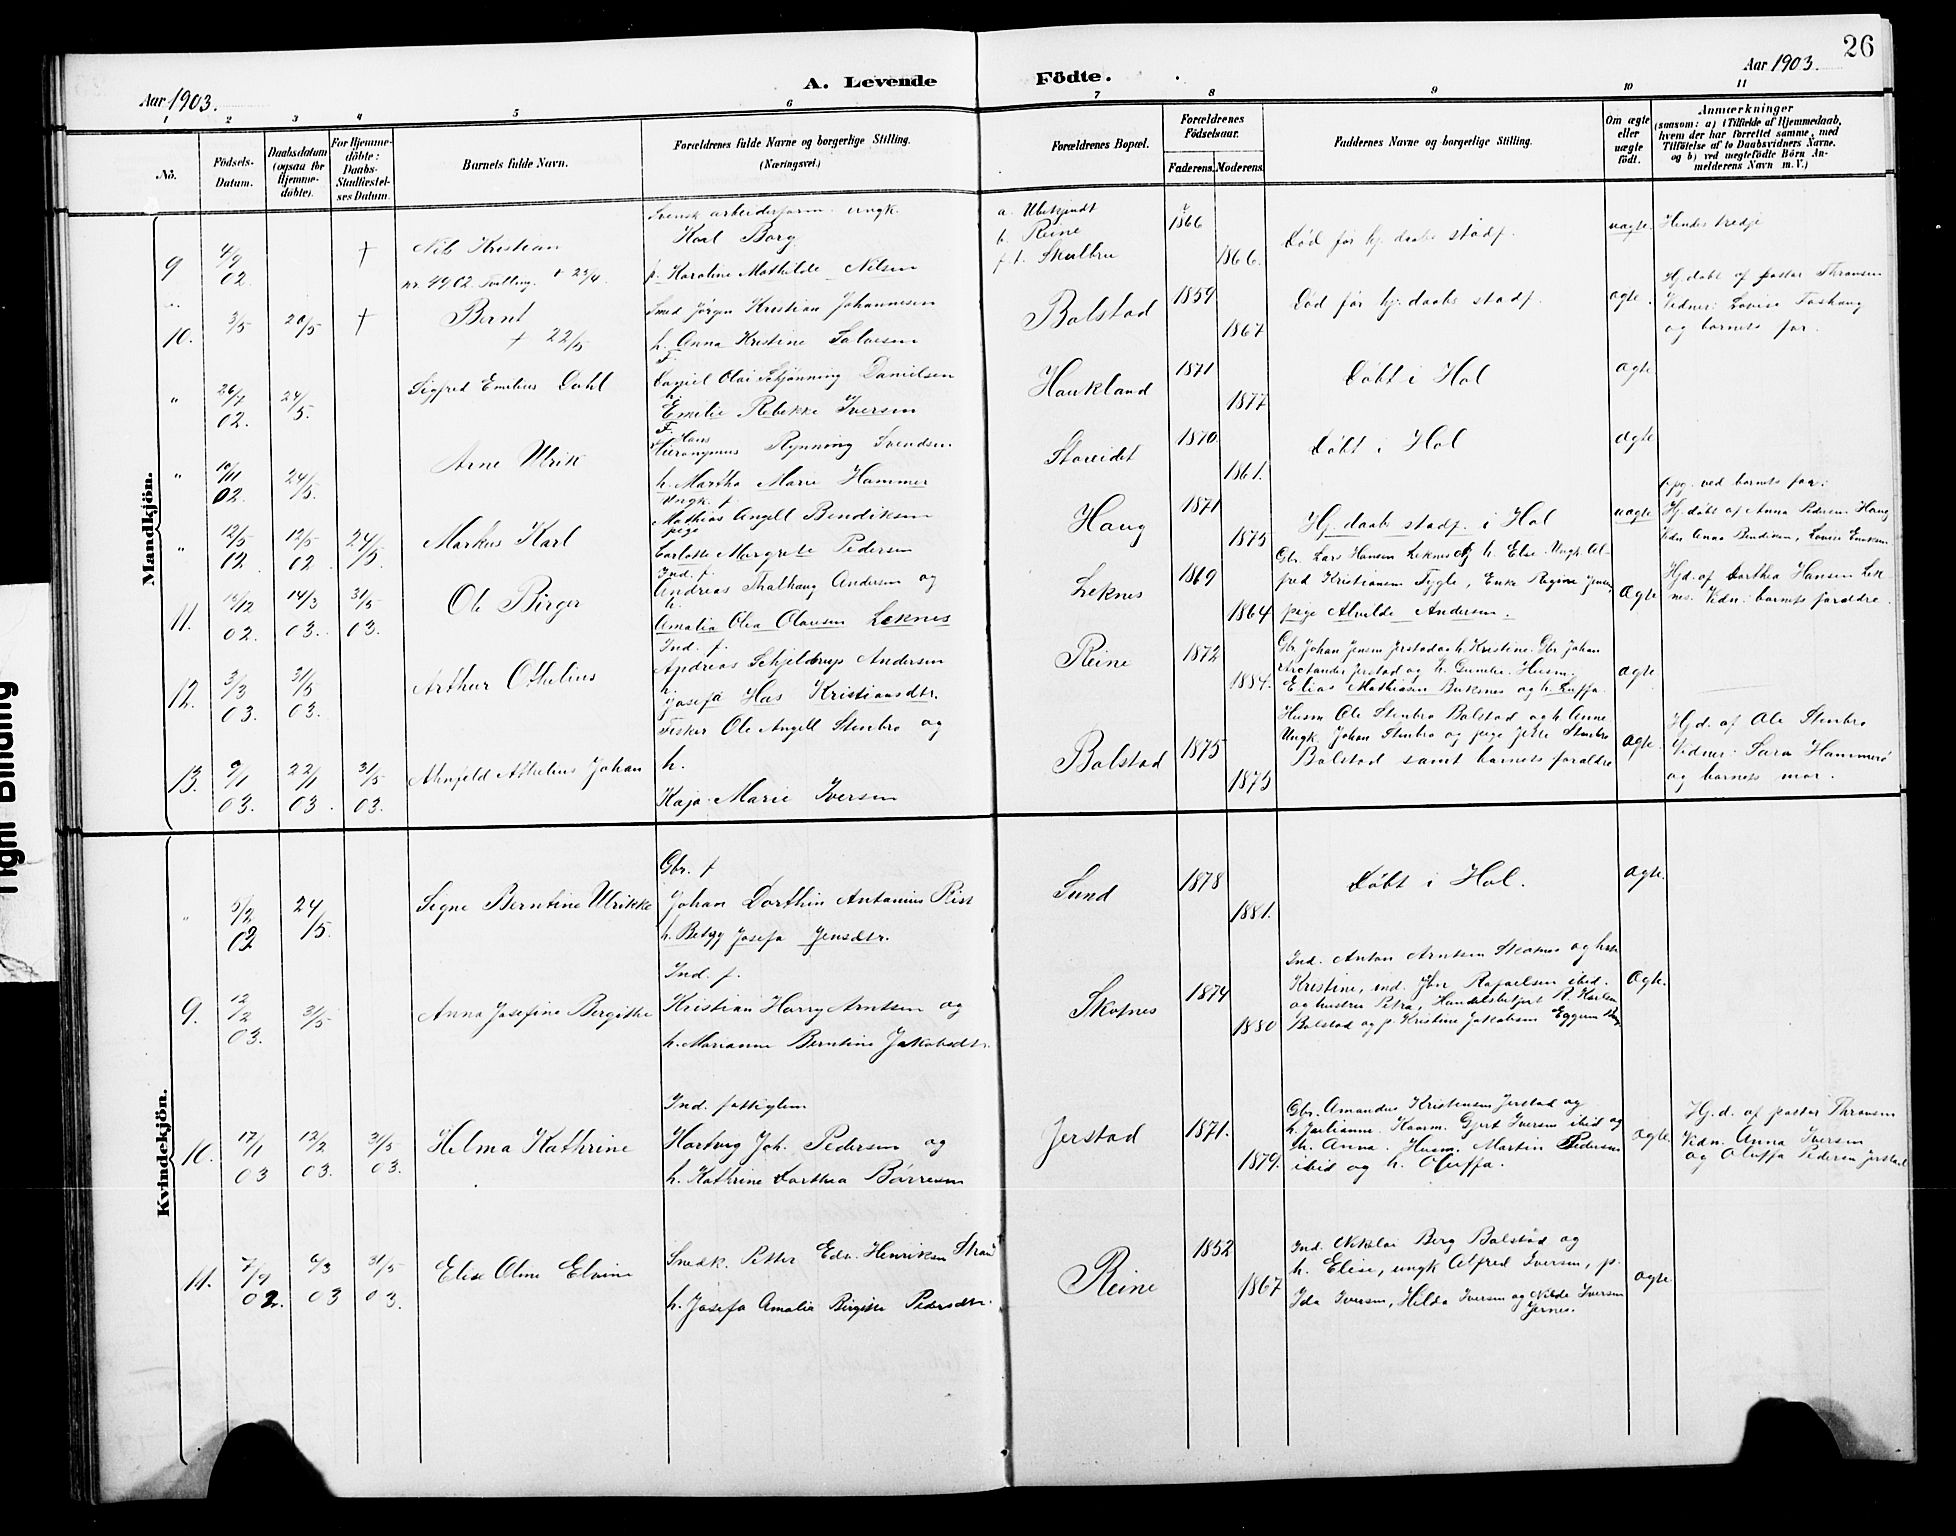 26
Aar 1903.
A. Levende
Födte.
Aar 1903.
1 2 3 4 5 6 7 8 9 10 11
No.
Födsels-
Datum.
Daabsdatum
(ogsaa for
Hjemme-
döbte).
For Hjemme-
döbte:
Daabs-
Stadfæstel-
ses Datum.
Barnets fulde Navn.
Forældrenes fulde Navne og borgerlige Stilling.
(Næringsvei.)
Forældrenes Bopæl.
Forældrenes
Födselsaar.
Faderens.
Moderens.
Faddernes Navne og borgerlige Stilling.
Om ægte
eller
uægte
födt.
Anmærkninger
(saasom: a) i Tilfælde af Hjemmedaab,
hvem der har forrettet samme, med
Tilföielse af to Daabsvidners Navne,
og b) ved uægtefödte Börn An-
melderens Navn m. V.)
Mandkjön.
9
4/9
02.
†
Nils Kristian
nr. 49 02. Tvilling. † 23/4.
Svensk arbeiderform. ungk.
Karl Borg
p. Karoline Mathilde Nilsen
a. Ubekjendt
b. Reine
p. t. Skulbru
1866
1866.
Död før hj. daabs stadf.
uægte.
Hendes tredje
10.
3/5
20/5
†
Bernt
† 22/5
Smed Jörgen Kristian Johannesen
h. Anna Kristine Salvesen
Bolstad
1859
1867
Död før hj. daabs stadf.
ægte.
Hj. döbt af pastor Thraasen
Vidner: Lovise Farhaug
og barnets far.
"
26/7
02.
24/5.
Sigfred Emelius Dahl
F.
Daniel Olai Schjønning Danielsen
h.
Emilie Rebekke Iversen
Haukland
1871
1877
Döbt i Hol
ægte
"
10/11
02.
24/5.
Arne Ulrik
F. Hans
Hieronymus Rynning Svendsen
h. Martha Marie Hammer
Storeidet
1870.
1861.
Döbt i Hol
ægte
"
12/5
02
12/5
02.
24/5.
Markus Karl
Ungk. f.
Mathias Angell Bendiksen
pige
Carlotte Margrete Pedersen
Haug
1871
1875
Hj. daabs stadf. i Hol
uægte
Opg. ved barnets far:
Hj. döbt af Anna Pedersen Haug
Vidn. Anna Bendiksen, Lovise Eriksen
11.
14/12
02.
14/3
03.
31/5
03.
Ole Birger
Ind. f.
Andreas Thalhaug Andersen og
h.
Amalia Olea Olausen Leknes
Leknes
1869
1864
Gbr. Lars Hansen Leknes og h. Else. Ungk. Al-
fred Kristiansen Fygle, Enke Regine Jensen
pige Alvilde Andersen.
ægte
Hjd. af Dorthea Hansen Lek
nes. Vidn: barnets forældre.
12.
3/3
03.
31/5
03.
Arthur Othelius
Ind. f.
Andreas Schjeldrup Andersen
h.
Josefa Has Kristiansdtr.
Reine
1872
1884.
Gbr. Johan Jensen Jerstad og h. Kristine. Gbr. Johan
Arctander Jerstad og h. Gunelie. Husm.
Elias Mathiasen Buksnes og h. Luffa.
ægte.
13.
9/1
03.
22/1
03.
31/5
03.
Ahnfeld Athelius Johan
Fisker Ole Angell Stenbro og
h.
Kaja Marie Iversen
Bolstad
1875
1875
Husm Ole Stenbro Bolstad og h. Anne
Ungk. Johan Stenbro og pige Jekle Stenbro
Bolstad samt barnets forældre
ægte.
Hjd. af Ole Stenbro
Vidner: Sara Hammerö
og barnets mor.
Kvindekjön.
"
5/2
02
24/5.
Signe Berntine Ulrikke
Gbr. f
Johan Dorthin Antonius Rist
h. Betzy Josefa Jensdtr.
Sund
1878
1881.
Döbt i Hol.
ægte.
9.
12/2
03.
31/5
Anna Josefine Bergitke
Ind. f.
Kristian Harry Arntsen og
h. Marianne Berntine Jakobsdtr.
Skotnes
1874
1880
Ind. Anton Arntsen Skotnes og hustru
Kristine, ind. Jörn Rafaelsen ibid.
og hustru Petra, Handelsbetjent R. Karlsen
Bolstad og p. Kristine Jakobsen Eggum
ægte.
10.
17/1
03
12/2
03.
31/5
03.
Helma Kathrine
Ind. fattiglem
Hartvig Joh. Pedersen og
h. Kathrine Dorthea Börresen
Jerstad
1871.
1879.
Gbr. Amandus Kristensen Jerstad og
h. Julianne. Kaarm. Gjert Iversen ibid og
h. Anna. Husm. Martin Pedersen
ibid og h. Oluffa.
ægte.
Hj. d. af pastor Thraasen
Vidn. Anna Iversen
og Oluffa Pedersen Jerstad
11.
7/9
02.
6/3
03
31/5
03.
Elise Oline Elvine
Snedk. Petter Edv. Henriksen Strand
h. Josefa Amalia Birgitte Pedersdtr.
Reine
1852
1867
Ind. Nikolai Berg Bolstad og
h. Elise, ungk Alfred Iversen, p.
Ida Iversen, Hilda Iversen og Nilda Iversen
Jernes.
ægte
Tight Binding